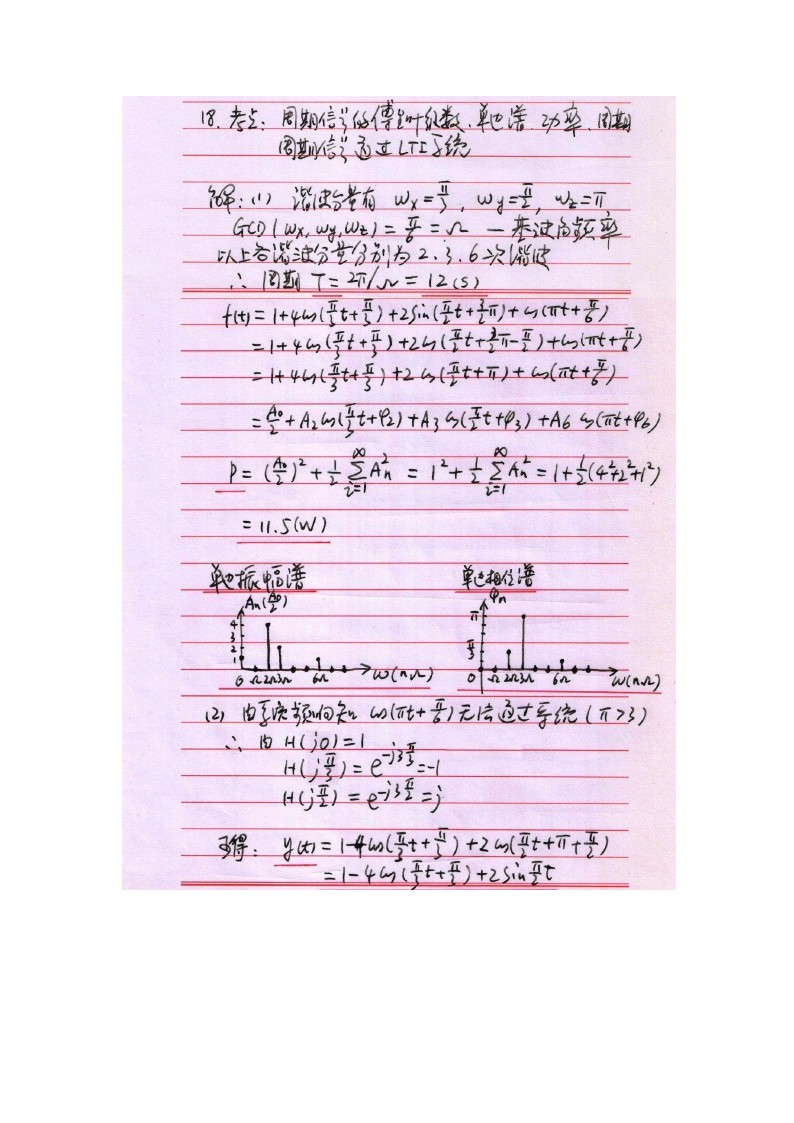 18. 考点: 周期信号的傅里叶级数、单边谱、功率、周期
周期信号通过LTI系统
解: (1) 谐波分量有 ωx = π/3, ωy = π/2, ωz = π
GCD(ωx, ωy, ωz) = π/6 = Ω — 基波角频率
以上各谐波分量分别为 2、3、6次谐波
∴ 周期 T = 2π/Ω = 12(s)
f(t) = 1+4cos(π/3 t + π/3) + 2sin(π/2 t + 3/2 π) + cos(πt + π/6)
= 1+4cos(π/3 t + π/3) + 2cos(π/2 t + 3/2 π - π/2) + cos(πt + π/6)
= 1+4cos(π/3 t + π/3) + 2cos(π/2 t + π) + cos(πt + π/6)
= A0/2 + A2cos(π/3 t + φ2) + A3cos(π/2 t + φ3) + A6 cos(πt + φ6)
P = (A0/2)² + 1/2 ∞∑i=1 An² = 1² + 1/2 ∞∑i=1 An² = 1 + 1/2(4²+2²+1²)
= 11.5(W)
单边振幅谱
An(A0/2)
4
3
2
1
0 Ω 2Ω 3Ω 6Ω ω(nΩ)
单边相位谱
φn
π
π/3
0 Ω 2Ω 3Ω 6Ω ω(nΩ)
(2) 由系统频响知 cos(πt + π/6) 无法通过系统 (π>3)
∴ 由 H(j0) = 1
H(jπ/3) = e^-j3π/3 = -1
H(jπ/2) = e^-j3π/2 = j
可得: y(t) = 1-4cos(π/3 t + π/3) + 2cos(π/2 t + π + π/2)
= 1-4cos(π/3 t + π/3) + 2sin π/2 t